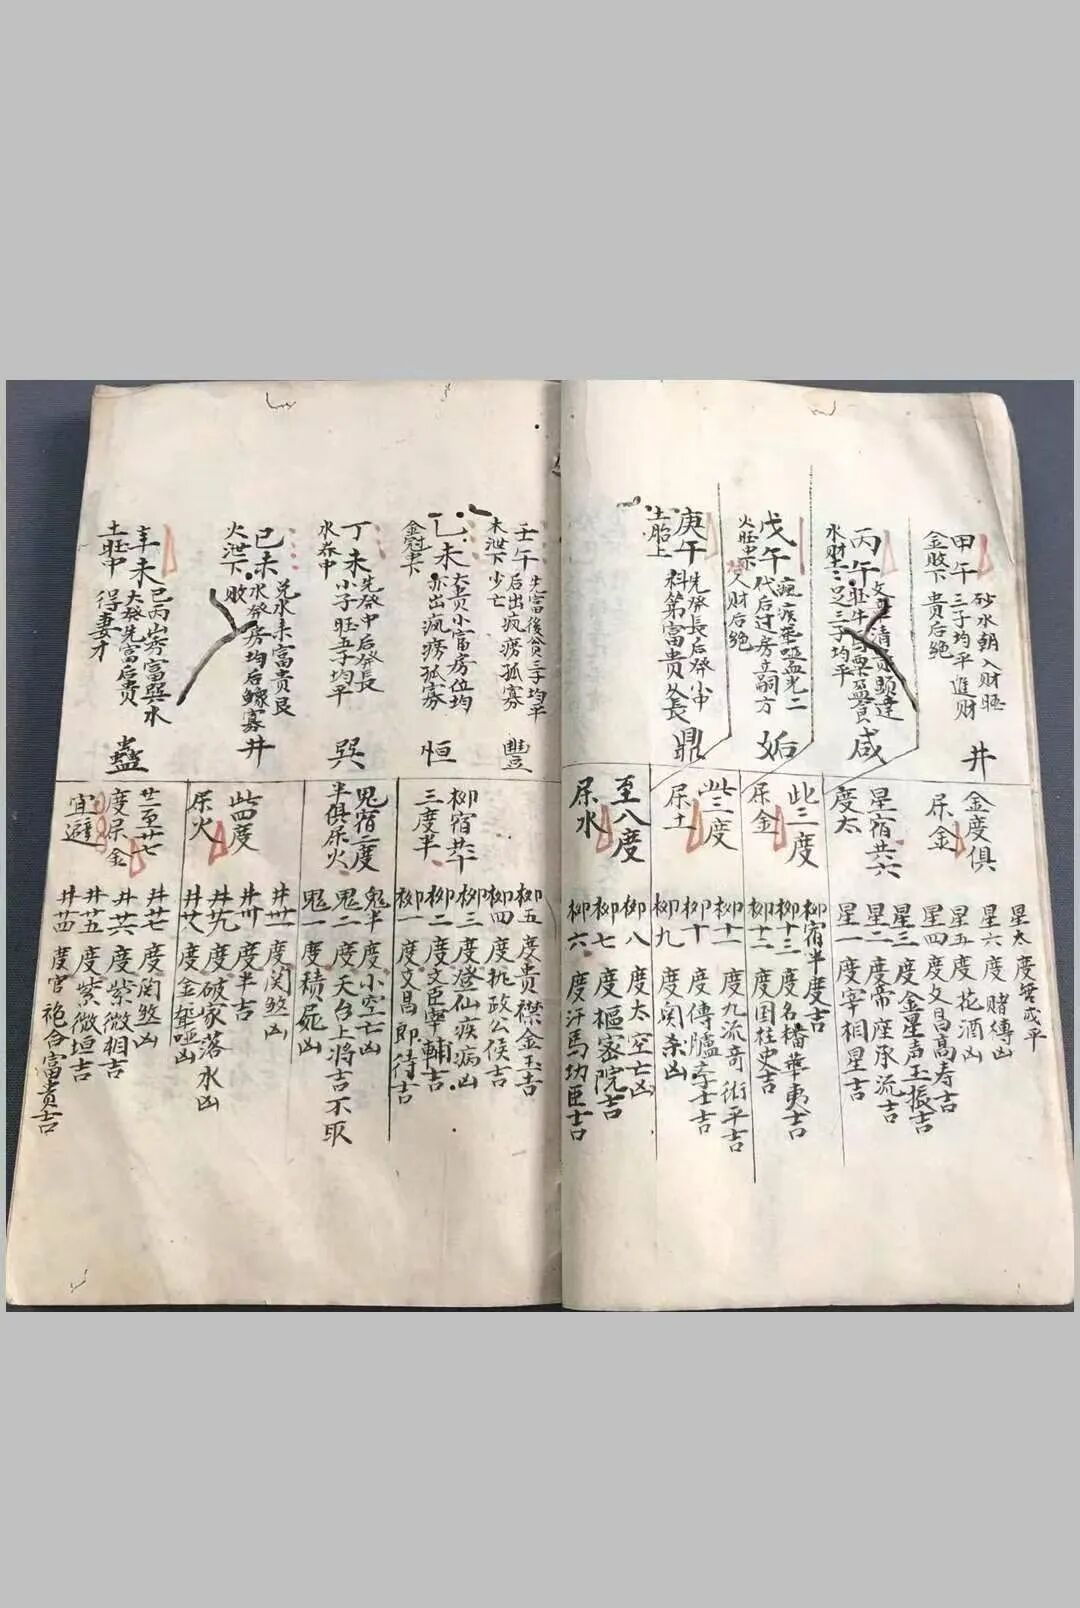 甲午
金敗下
砂水朝入財旺
三子均平進財
貴后絕
井
丙午
水財
三子均平
咸
戊午
代后过房立嗣方
人財后絕
姤
庚午
土胎上
先發長后發小中
科第富貴久長
鼎
壬午
木泄下少亡
后出疯痨孤寡
豐
乙未
金冠中下
大貴小富房位均
亦出疯痨孤寡
恒
丁未
水养中
先發中后發長
小子旺五子均平
巽
己未
火泄下
兑水来富貴艮
水發房均后鳏寡
敗
井
辛未
土旺中
大發先富后贵
得妻才
蠱
金度俱
尿金
星宿共六
度太
此三度
尿金
此三度
尿土
至八度
尿水
柳宿共十
三度半
鬼宿二度
半俱尿火
此四度
尿火
廿二至廿七
度尿金
宜避
星六度赌博凶
星五度花酒凶
星四度文昌高寿吉
星三度金星声玉振吉
星二度帝座承流吉
星一度宰相星吉
柳宿半度吉
柳十三度名播華夷吉
柳十二度国柱史吉
柳十一度九流奇術平吉
柳十度傳臚学士吉
柳九度関杀凶
柳八度太空亡凶
柳七度樞密院吉
柳六度汗馬功臣吉
柳五度贵襟金玉吉
柳四度执政公侯吉
柳三度登仙疾病凶
柳二度文臣宰輔吉
柳一度文昌郎待吉
鬼半度小空亡凶
鬼二度天台上将吉不取
鬼一度積屍凶
井卅一度関煞凶
井卅度半吉
井廿九度破家落水凶
井廿八度金聾哑凶
井廿七度関煞凶
井廿六度紫微相吉
井廿五度紫微垣吉
井廿四度官袍合富貴吉